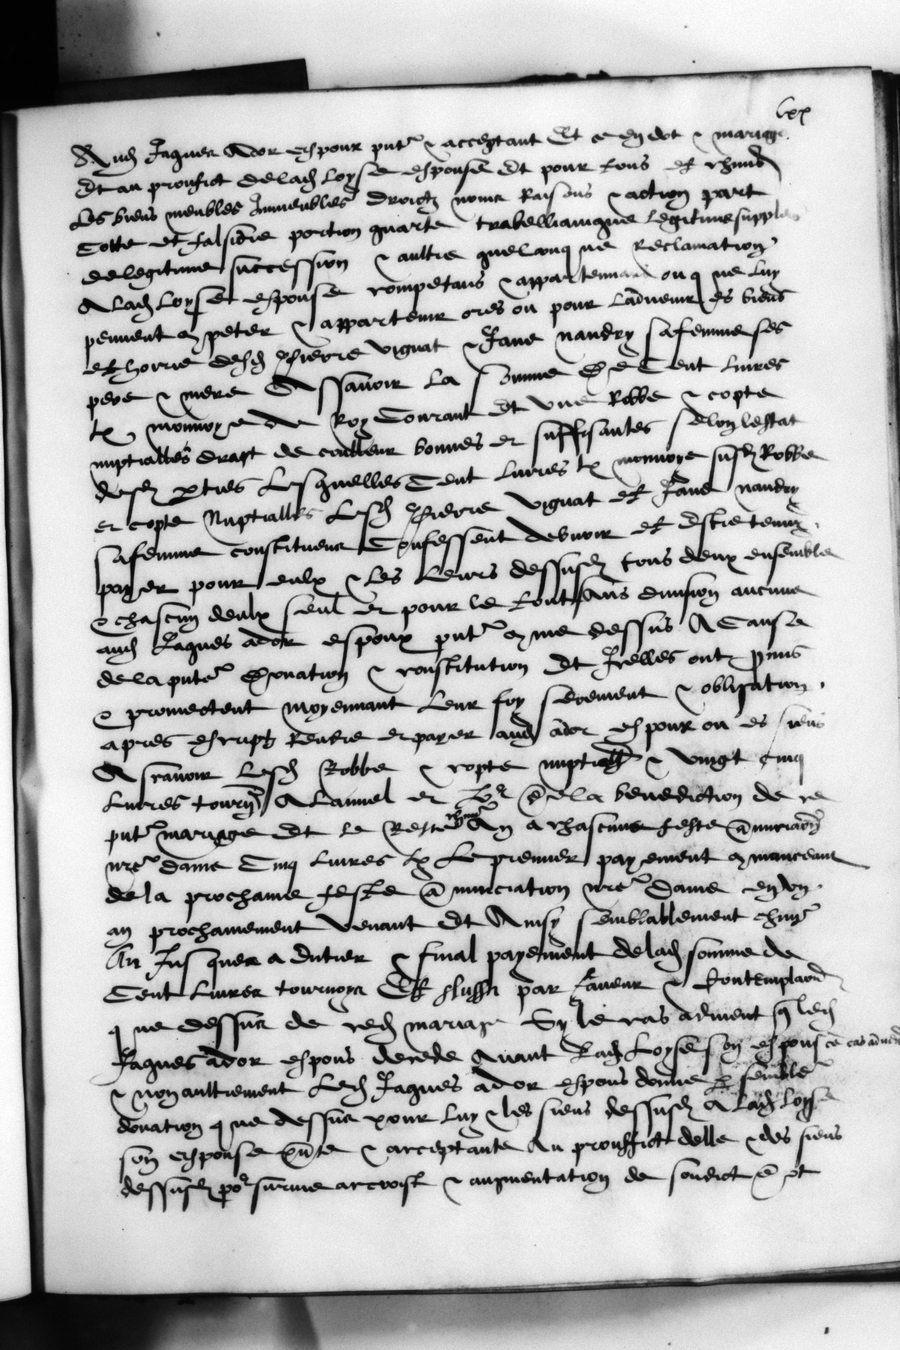 lxx
Aud Jaques Ador espoux put & acceptant Et ce en dot & mariage
Et au prouffict de lad Loyse espouse Et pour tous et chascuns
Les biens meubles Immeubles droictz noms Raisons & action part
Cotte et falsidie portion quarte trabellianique legitime supplet
de legitime succession & aultre quelconque Reclamation
A Lad Loyse espouse competans & appartenans ou que luy
peuvent competer & appartenir ores ou pour Ladvenir es biens
et hoirie desd Pierre viguat & Jane nandry sa femme ses
pere & mere Assavoir La somme De Cent Livres
tz monnoye de Roy Courant Et une Robbe & cotte
nuptialles drapt de coulleur bonnes et suffisantes selon lestat
desd parties Lesquelles Cent Livres tz monnoye susd Robbe
et cotte Nuptialles Lesd Pierre viguat et Jane nandry
sa femme constituens Confessent debvoir et Estre tenuz
payer pour eulx & Les Leurs dessusd tous deux ensemble
& chascun deulx seul et pour le tout sans division aucune
aud Jaques ador espoux put comme dessus A Cause
de la pute Donation & constitution Et Icelles ont promis
& promectent moyennant Leur foy serement & obligation
apres escriptz Rendre et payer aud ador espoux ou es siens
Ascavoir Lesd Robbe & cotte nuptialle & vingt cinq
Livres tournois A Lannel et Jour de la benediction de ce
put mariage Et le Reste An a chascune feste annunciation
nre dame Cinq Livres tz Le premier payement commenceant
de la prochaine feste annunciation nre Dame en ung
an prochainement venant Et Ainsy semblablement chun
An Jusques a entier & final payement de lad somme de
Cent Livres tournoys Et plussa par faveur & Contemplaon
que dessus de ced mariage Sy le cas advient q led
Jaques ador espoux decede Avant Lad Loyse son espouse ce cas advenant
& non aultrement Led Jaques ador espoux donne par semble
donation que dessus pour luy & les siens dessusd A Lad Loyse
son espouse pnte & acceptante Au prouffict delle & des siens
dessusd por survie accroist & augmentation de sondict dot